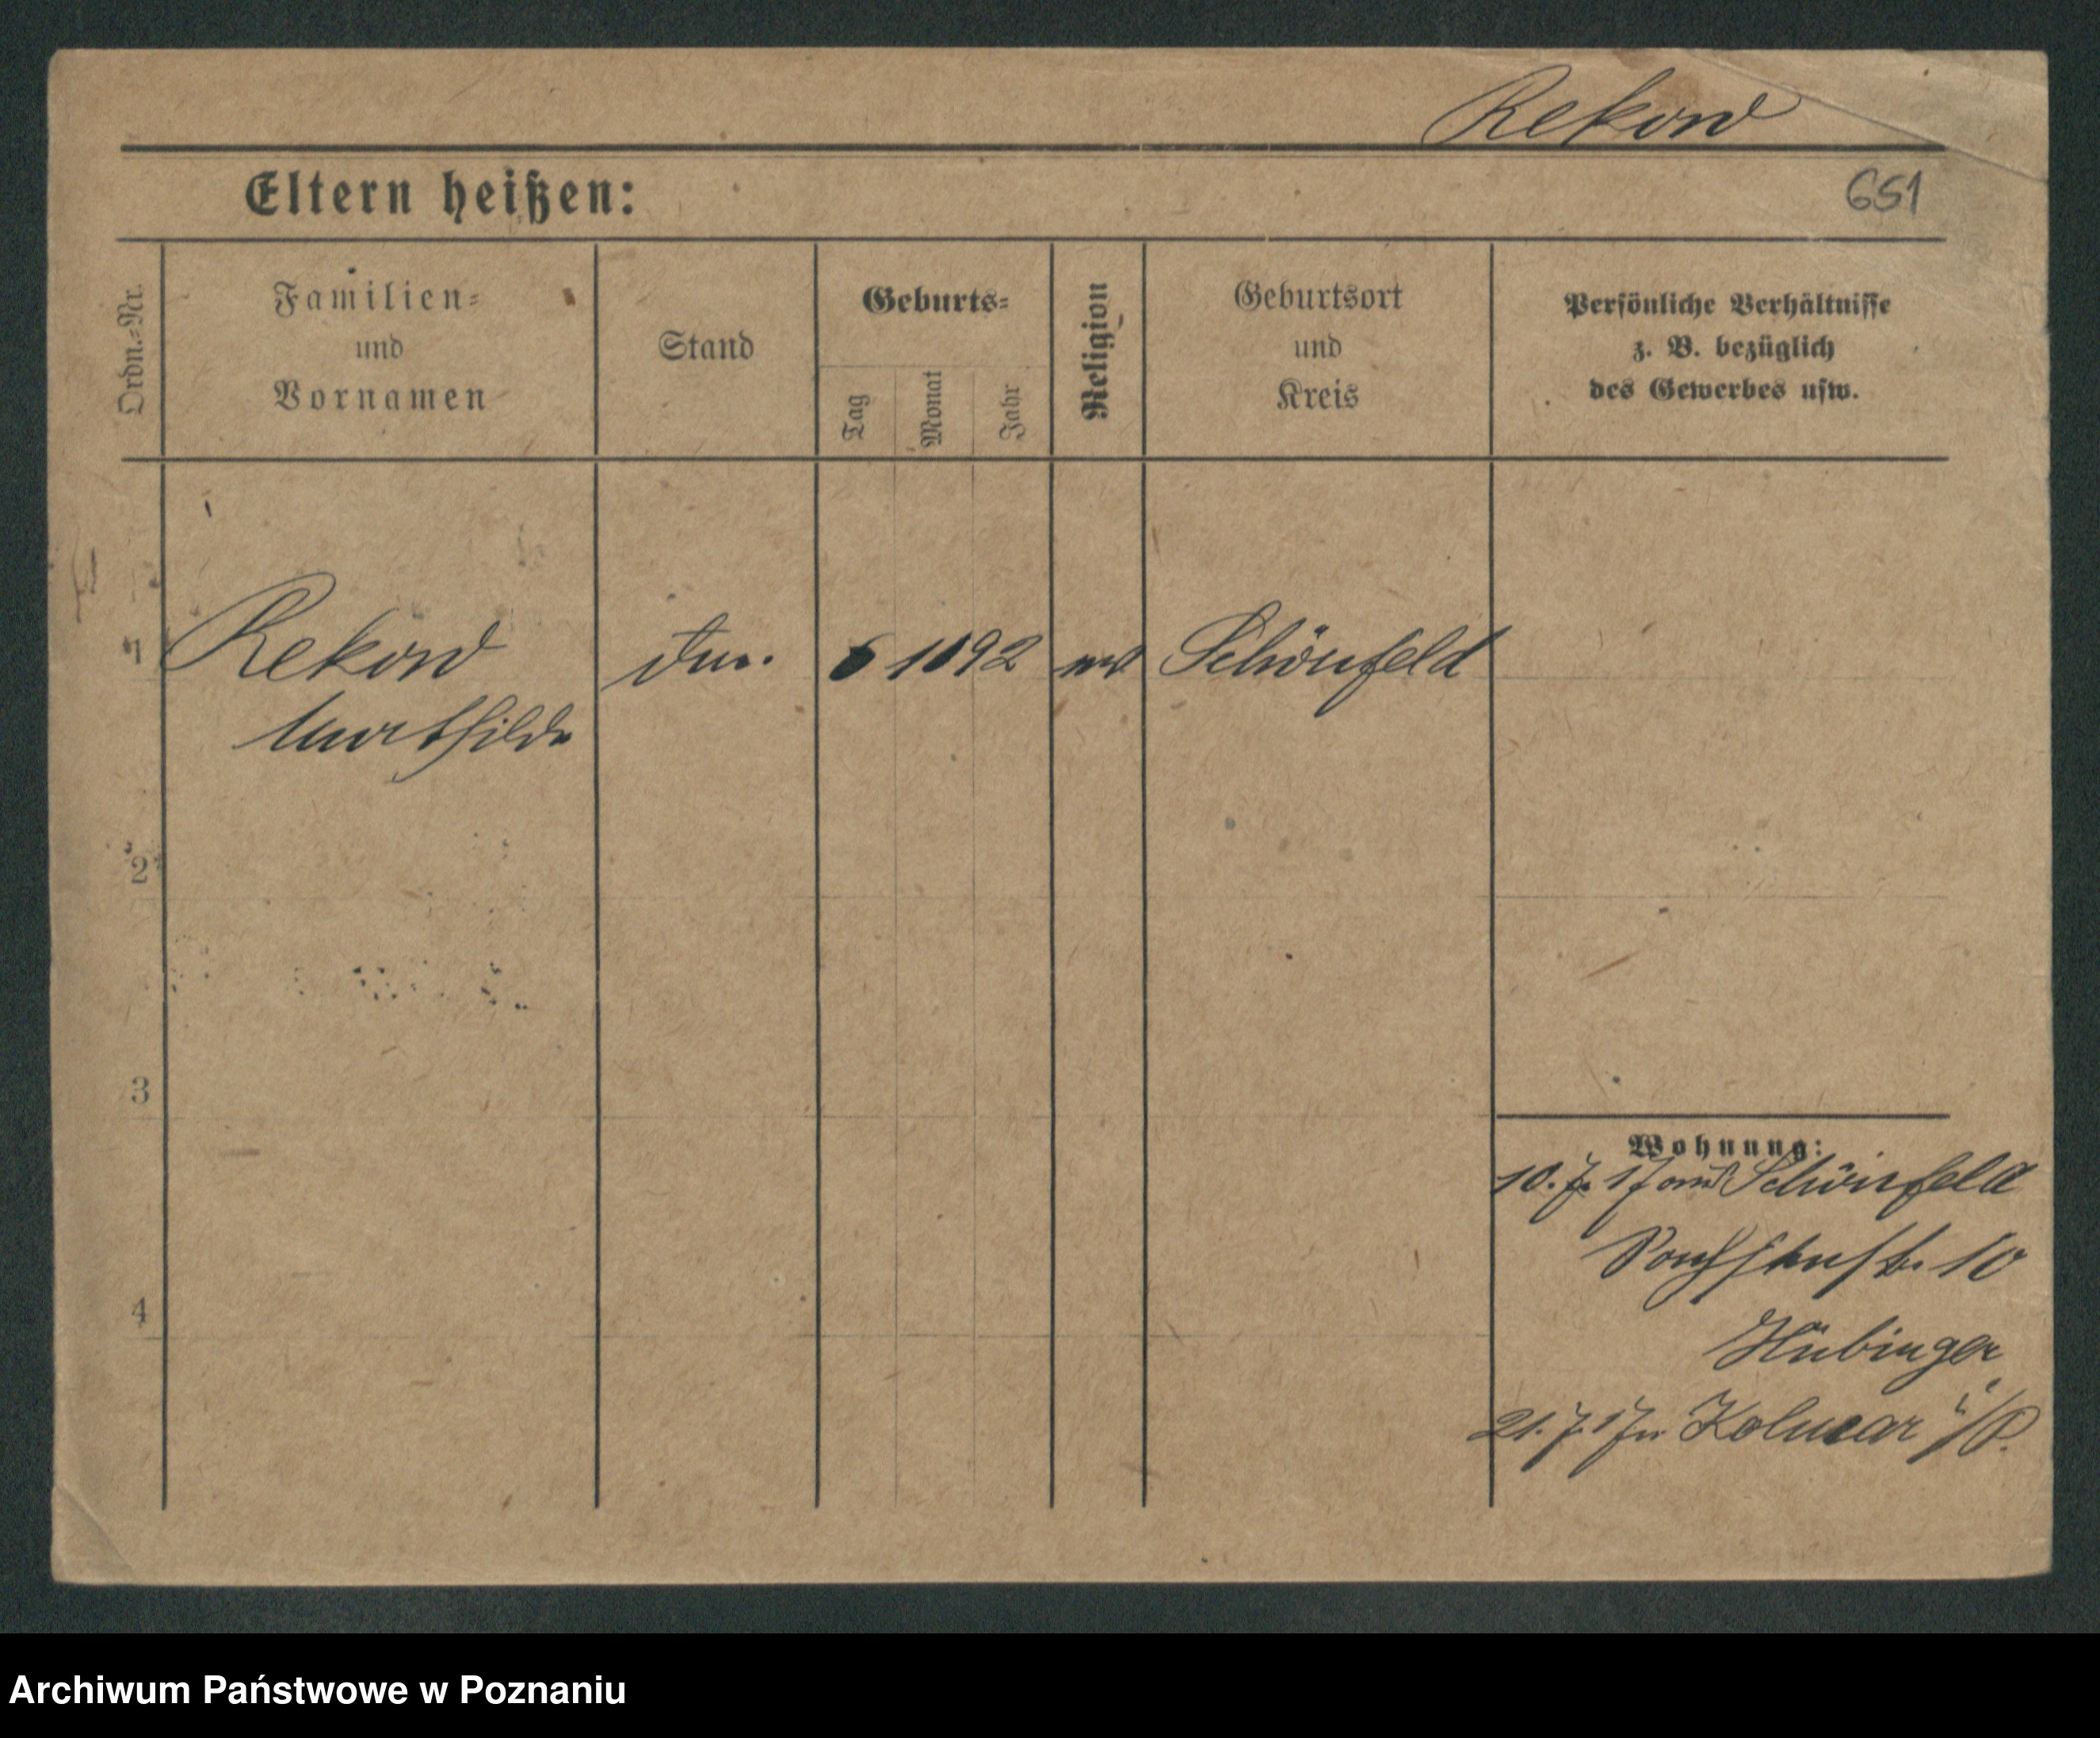 Rekow
Eltern heißen:
651
Ordn.=Nr.
Familien=
und
Vornamen
Stand
Geburts=
Tag
Monat
Jahr
Religion
Geburtsort
und
Kreis
Persönliche Verhältnisse
z. B. bezüglich
des Gewerbes usw.
1
Rekow
Mathilde
6 10 92
Schönfeld
2
3
4
Wohnung:
10. 7. 17 aus Schönfeld
10
Hübinger
21. 7. 17 n. Kolmar i/P.
Archiwum Państwowe w Poznaniu